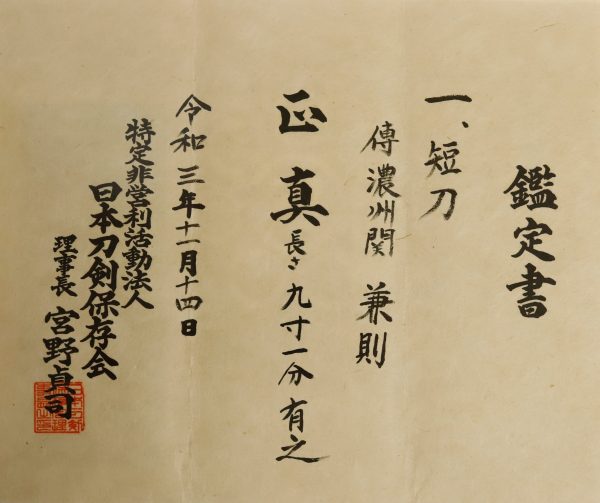 鑑定書
一、短刀
傳濃州関 兼則
正真 長さ九寸一分有之
令和三年十一月十四日
特定非営利活動法人
日本刀剣保存会
理事長 宮野貞司